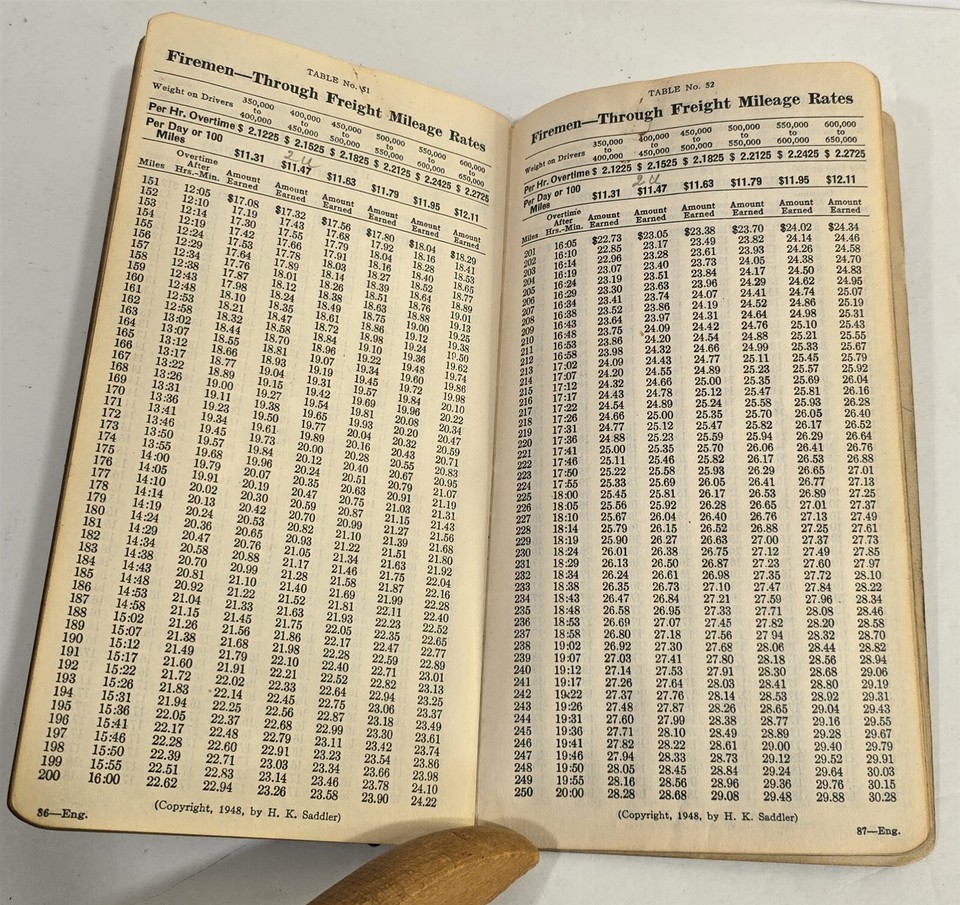 TABLE No. 51
Firemen—Through Freight Mileage Rates
Weight on Drivers 350,000 to 400,000 400,000 to 450,000 450,000 to 500,000 500,000 to 550,000 550,000 to 600,000 600,000 to 650,000
Per Hr. Overtime $ 2.1225 $ 2.1525 $ 2.1825 $ 2.2125 $ 2.2425 $ 2.2725
24
Per Day or 100 Miles $11.31 $11.47 $11.63 $11.79 $11.95 $12.11
Miles Overtime After Hrs.-Min. Amount Earned Amount Earned Amount Earned Amount Earned Amount Earned Amount Earned
151 12:05 $17.08 $17.32 $17.56 $17.80 $18.04 $18.29
152 12:10 17.19 17.43 17.68 17.92 18.16 18.41
153 12:14 17.30 17.55 17.79 18.04 18.28 18.53
154 12:19 17.42 17.66 17.91 18.16 18.40 18.65
155 12:24 17.53 17.78 18.03 18.27 18.52 18.77
156 12:29 17.64 17.89 18.14 18.39 18.64 18.89
157 12:34 17.76 18.01 18.26 18.51 18.76 19.01
158 12:38 17.87 18.12 18.38 18.63 18.88 19.13
159 12:43 17.98 18.24 18.49 18.75 19.00 19.25
160 12:48 18.10 18.35 18.61 18.86 19.12 19.38
161 12:53 18.21 18.47 18.72 18.98 19.24 19.50
162 12:58 18.32 18.58 18.84 19.10 19.36 19.62
163 13:02 18.44 18.70 18.96 19.22 19.48 19.74
164 13:07 18.55 18.81 19.07 19.34 19.60 19.86
165 13:12 18.66 18.93 19.19 19.45 19.72 19.98
166 13:17 18.77 19.04 19.31 19.57 19.84 20.10
167 13:22 18.89 19.15 19.42 19.69 19.96 20.22
168 13:26 19.00 19.27 19.54 19.81 20.08 20.34
169 13:31 19.11 19.38 19.65 19.93 20.20 20.47
170 13:36 19.23 19.50 19.77 20.04 20.32 20.59
171 13:41 19.34 19.61 19.89 20.16 20.43 20.71
172 13:46 19.45 19.73 20.00 20.28 20.55 20.83
173 13:50 19.57 19.84 20.12 20.40 20.67 20.95
174 13:55 19.68 19.96 20.24 20.51 20.79 21.07
175 14:00 19.79 20.07 20.35 20.63 20.91 21.19
176 14:05 19.91 20.19 20.47 20.75 21.03 21.31
177 14:10 20.02 20.30 20.59 20.87 21.15 21.43
178 14:14 20.13 20.42 20.70 20.99 21.27 21.56
179 14:19 20.24 20.53 20.82 21.10 21.39 21.68
180 14:24 20.36 20.65 20.93 21.22 21.51 21.80
181 14:29 20.47 20.76 21.05 21.34 21.63 21.92
182 14:34 20.58 20.88 21.17 21.46 21.75 22.04
183 14:38 20.70 20.99 21.28 21.58 21.87 22.16
184 14:43 20.81 21.10 21.40 21.69 21.99 22.28
185 14:48 20.92 21.22 21.52 21.81 22.11 22.40
186 14:53 21.04 21.33 21.63 21.93 22.23 22.52
187 14:58 21.15 21.45 21.75 22.05 22.35 22.65
188 15:02 21.26 21.56 21.86 22.17 22.47 22.77
189 15:07 21.38 21.68 21.98 22.28 22.59 22.89
190 15:12 21.49 21.79 22.10 22.40 22.71 23.01
191 15:17 21.60 21.91 22.21 22.52 22.82 23.13
192 15:22 21.72 22.02 22.33 22.64 22.94 23.25
193 15:26 21.83 22.14 22.45 22.75 23.06 23.37
194 15:31 21.94 22.25 22.56 22.87 23.18 23.49
195 15:36 22.05 22.37 22.68 22.99 23.30 23.61
196 15:41 22.17 22.48 22.79 23.11 23.42 23.74
197 15:46 22.28 22.60 22.91 23.23 23.54 23.86
198 15:50 22.39 22.71 23.03 23.34 23.66 23.98
199 15:55 22.51 22.83 23.14 23.46 23.78 24.10
200 16:00 22.62 22.94 23.26 23.58 23.90 24.22
86—Eng.
(Copyright, 1948, by H. K. Saddler)
TABLE No. 52
Firemen—Through Freight Mileage Rates
Weight on Drivers 350,000 to 400,000 400,000 to 450,000 450,000 to 500,000 500,000 to 550,000 550,000 to 600,000 600,000 to 650,000
Per Hr. Overtime $ 2.1225 $ 2.1525 $ 2.1825 $ 2.2125 $ 2.2425 $ 2.2725
24
Per Day or 100 Miles $11.31 $11.47 $11.63 $11.79 $11.95 $12.11
Miles Overtime After Hrs.-Min. Amount Earned Amount Earned Amount Earned Amount Earned Amount Earned Amount Earned
201 16:05 $22.73 $23.05 $23.38 $23.70 $24.02 $24.34
202 16:10 22.85 23.17 23.49 23.82 24.14 24.46
203 16:14 22.96 23.28 23.61 23.93 24.26 24.58
204 16:19 23.07 23.40 23.73 24.05 24.38 24.70
205 16:24 23.19 23.51 23.84 24.17 24.50 24.83
206 16:29 23.30 23.63 23.96 24.29 24.62 24.95
207 16:34 23.41 23.74 24.07 24.41 24.74 25.07
208 16:38 23.52 23.86 24.19 24.52 24.86 25.19
209 16:43 23.64 23.97 24.31 24.64 24.98 25.31
210 16:48 23.75 24.09 24.42 24.76 25.10 25.43
211 16:53 23.86 24.20 24.54 24.88 25.21 25.55
212 16:58 23.98 24.32 24.66 24.99 25.33 25.67
213 17:02 24.09 24.43 24.77 25.11 25.45 25.79
214 17:07 24.20 24.55 24.89 25.23 25.57 25.92
215 17:12 24.32 24.66 25.00 25.35 25.69 26.04
216 17:17 24.43 24.78 25.12 25.47 25.81 26.16
217 17:22 24.54 24.89 25.24 25.58 25.93 26.28
218 17:26 24.66 25.00 25.35 25.70 26.05 26.40
219 17:31 24.77 25.12 25.47 25.82 26.17 26.52
220 17:36 24.88 25.23 25.59 25.94 26.29 26.64
221 17:41 25.00 25.35 25.70 26.06 26.41 26.76
222 17:46 25.11 25.46 25.82 26.17 26.53 26.88
223 17:50 25.22 25.58 25.93 26.29 26.65 27.01
224 17:55 25.33 25.69 26.05 26.41 26.77 27.13
225 18:00 25.45 25.81 26.17 26.53 26.89 27.25
226 18:05 25.56 25.92 26.28 26.65 27.01 27.37
227 18:10 25.67 26.04 26.40 26.76 27.13 27.49
228 18:14 25.79 26.15 26.52 26.88 27.25 27.61
229 18:19 25.90 26.27 26.63 27.00 27.37 27.73
230 18:24 26.01 26.38 26.75 27.12 27.49 27.85
231 18:29 26.13 26.50 26.87 27.23 27.60 27.97
232 18:34 26.24 26.61 26.98 27.35 27.72 28.10
233 18:38 26.35 26.73 27.10 27.47 27.84 28.22
234 18:43 26.47 26.84 27.21 27.59 27.96 28.34
235 18:48 26.58 26.95 27.33 27.71 28.08 28.46
236 18:53 26.69 27.07 27.45 27.82 28.20 28.58
237 18:58 26.80 27.18 27.56 27 94 28.32 28.70
238 19:02 26.92 27.30 27.68 28.06 28.44 28.82
239 19:07 27.03 27.41 27.80 28.18 28.56 28.94
240 19:12 27.14 27.53 27.91 28.30 28.68 29.06
241 19:17 27.26 27.64 28.03 28.41 28.80 29.19
242 19:22 27.37 27.76 28.14 28.53 28.92 29.31
243 19:26 27.48 27.87 28.26 28.65 29.04 29.43
244 19:31 27.60 27.99 28.38 28.77 29.16 29.55
245 19:36 27.71 28.10 28.49 28.89 29.28 29.67
246 19:41 27.82 28.22 28.61 29.00 29.40 29.79
247 19:46 27.94 28.33 28.73 29.12 29.52 29.91
248 19:50 28.05 28.45 28.84 29.24 29.64 30.03
249 19:55 28.16 28.56 28.96 29.36 29.76 30.15
250 20:00 28.28 28.68 29.08 29.48 29.88 30.28
(Copyright, 1948, by H. K. Saddler)
87—Eng.